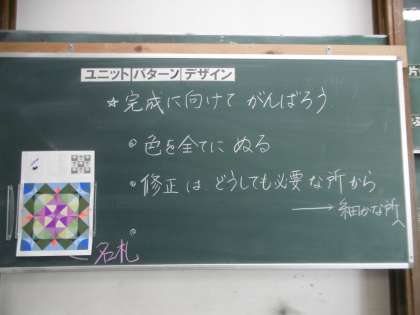 ユニット パターン デザイン
☆完成に向けて がんばろう
○色を全てに ぬる
○修正は、どうしても必要な所から
→細かな所へ
○
名札